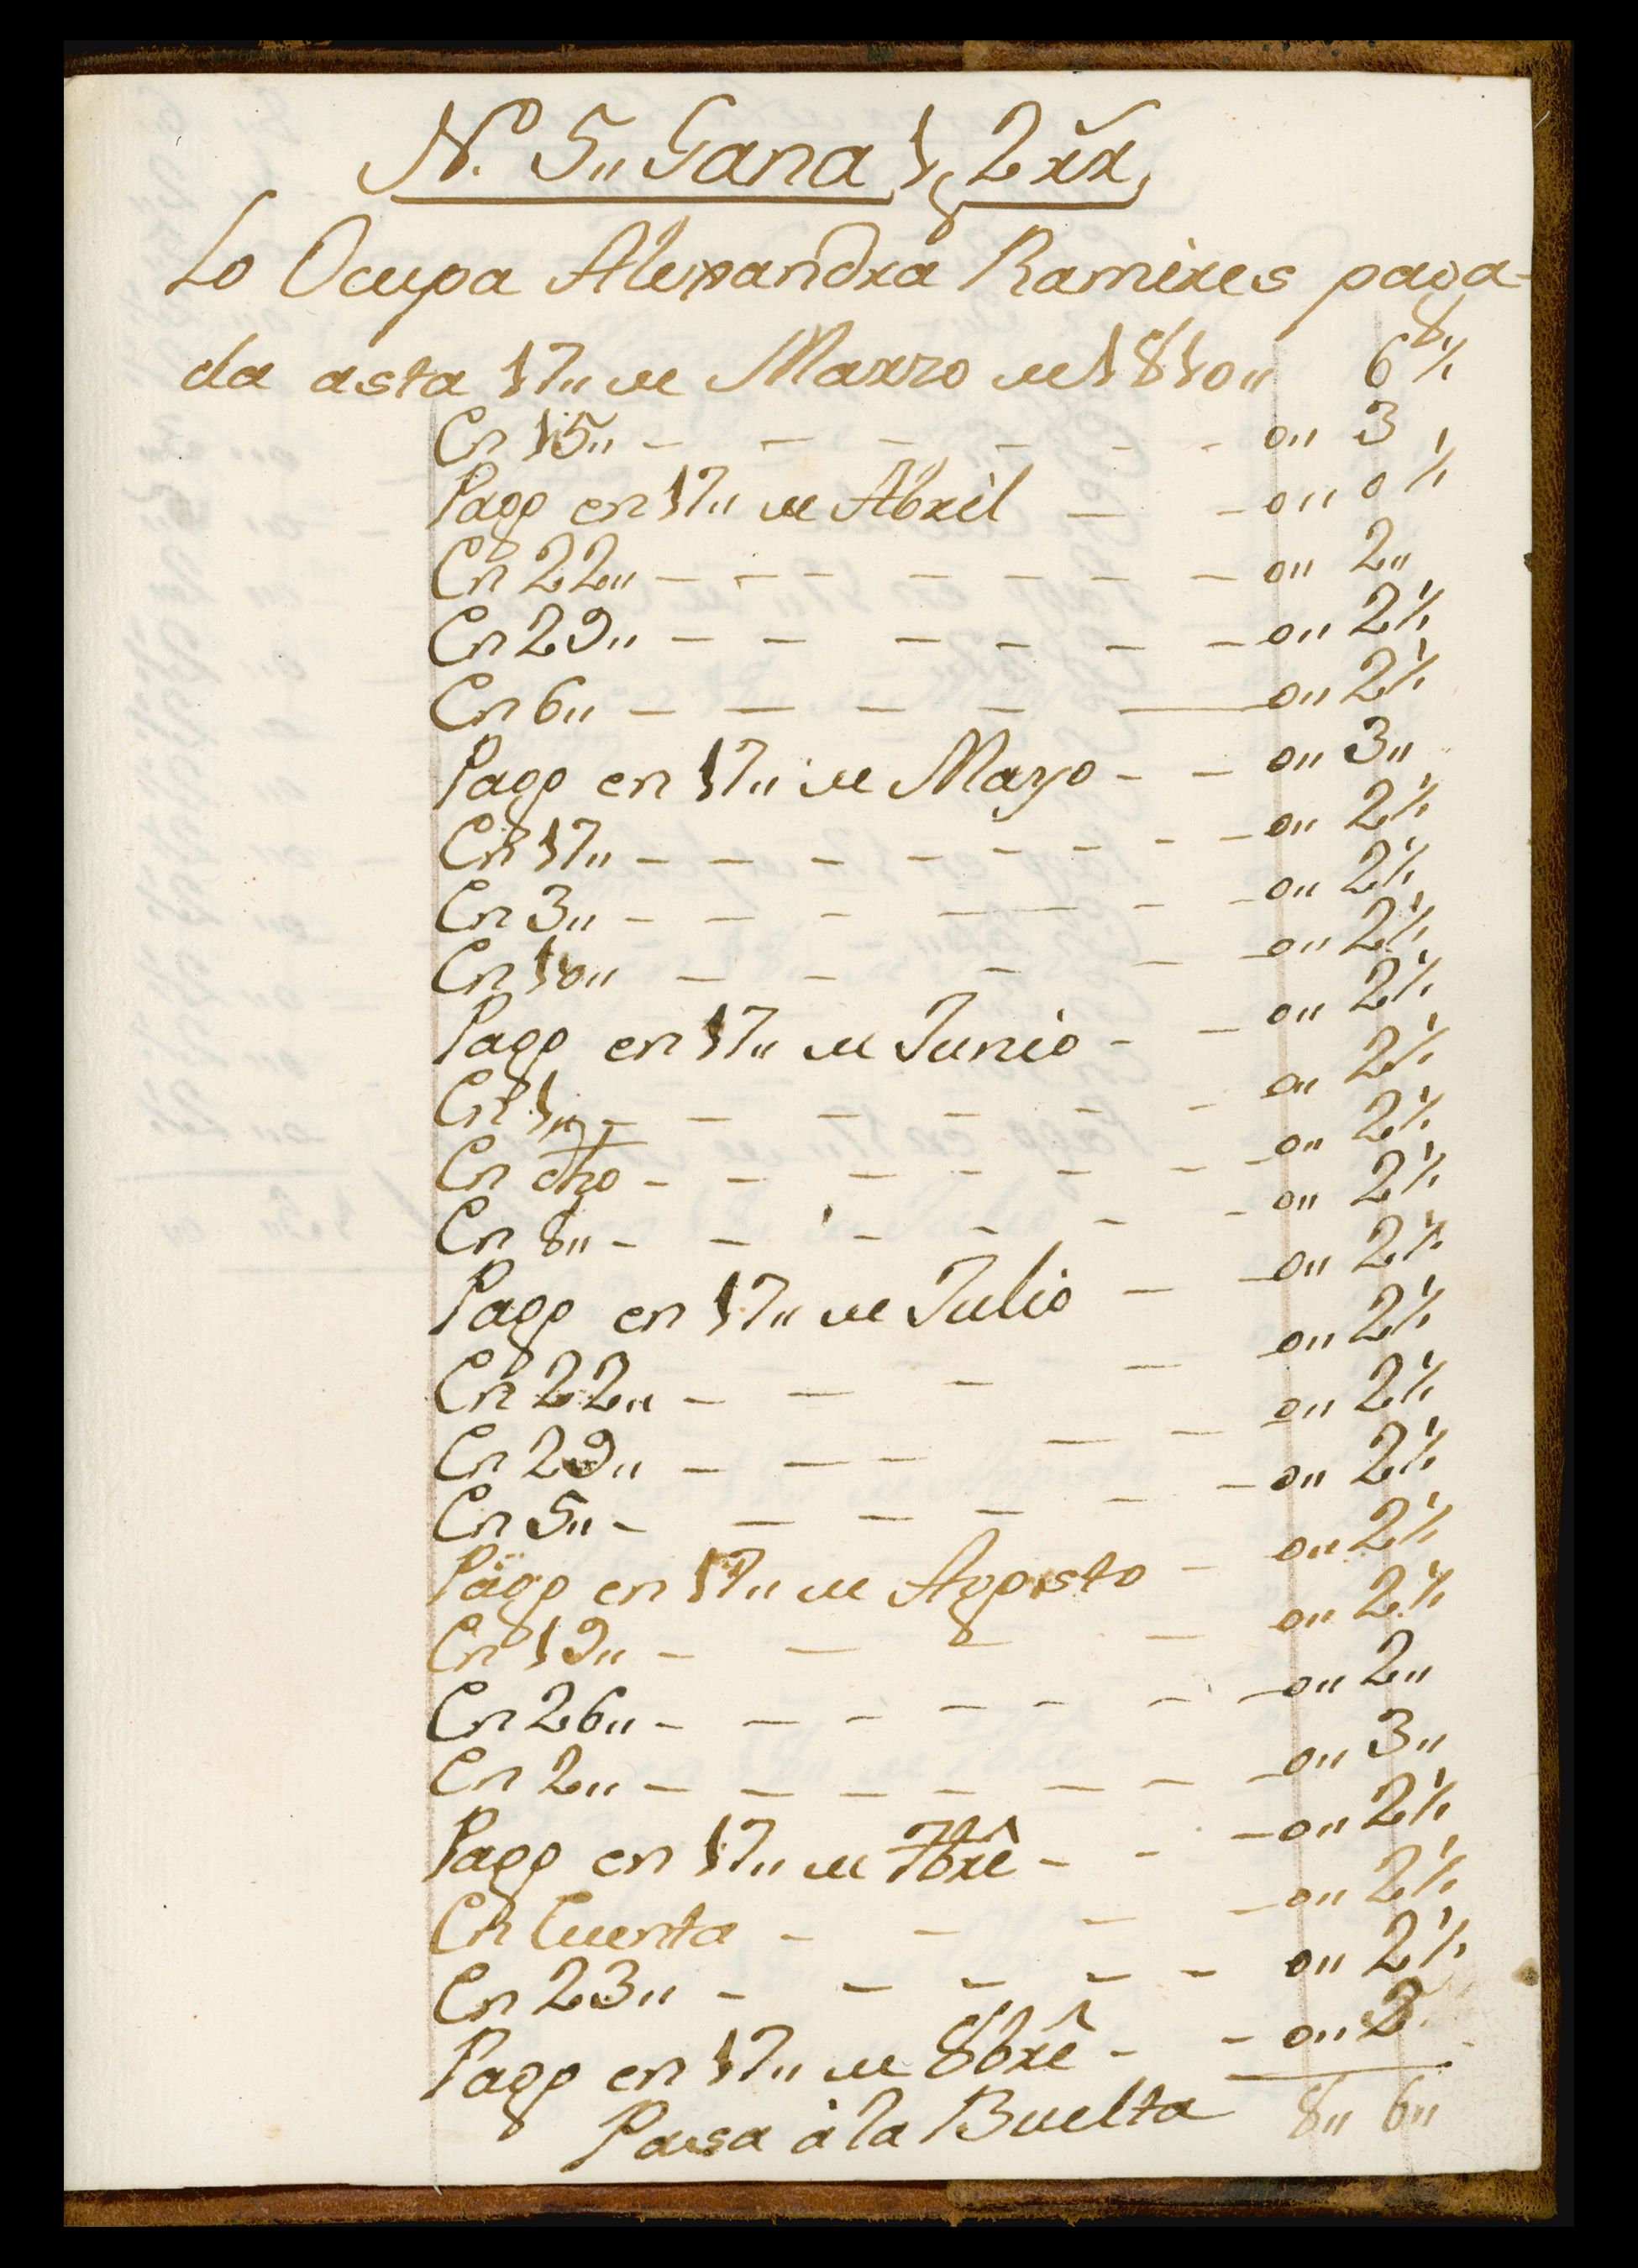 N.º 5,, Gana 1, 2 rr̃
Lo Ocupa Alexandra Ramires paga-
da asta 17,, de Marzo de 1810,, 6 ½
En 15,, - - - - - - 0,, 3
Pago en 17,, de Abril - - 0,, 0 ½
En 22,, - - - - - - - 0,, 2,,
En 29,, - - - - - - 0,, 2 ½
En 6,, - - - - - 0,, 2 ½
Pago en 17,, de Mayo - - 0,, 3,,
En 17,, - - - - - - - - 0,, 2 ½
En 3,, - - - - - - 0,, 2 ½
En 10,, - - - - - 0,, 2 ½
Pago en 17,, de Junio - - 0,, 2 ½
En 1,, - - - - - - 0,, 2 ½
En dho - - - - - - - 0,, 2 ½
En 8,, - - - - - - 0,, 2 ½
Pago en 17,, de Julio - - 0,, 2 ½
En 22,, - - - - 0,, 2 ½
En 29,, - - - - - 0,, 2 ½
En 5,, - - - - - - 0,, 2 ½
Pago en 17,, de Agosto - 0,, 2 ½
En 19,, - - - - 0,, 2 ½
En 26,, - - - - - - - 0,, 2,,
En 2,, - - - - - - - 0,, 3,,
Pago en 17,, de 7brê - - - 0,, 2 ½
En Cuenta - - - - 0,, 2 ½
En 23,, - - - - - 0,, 2 ½
Pago en 17,, de 8brê - - 0,, 2
Pasa à la Buelta 8,, 6,,